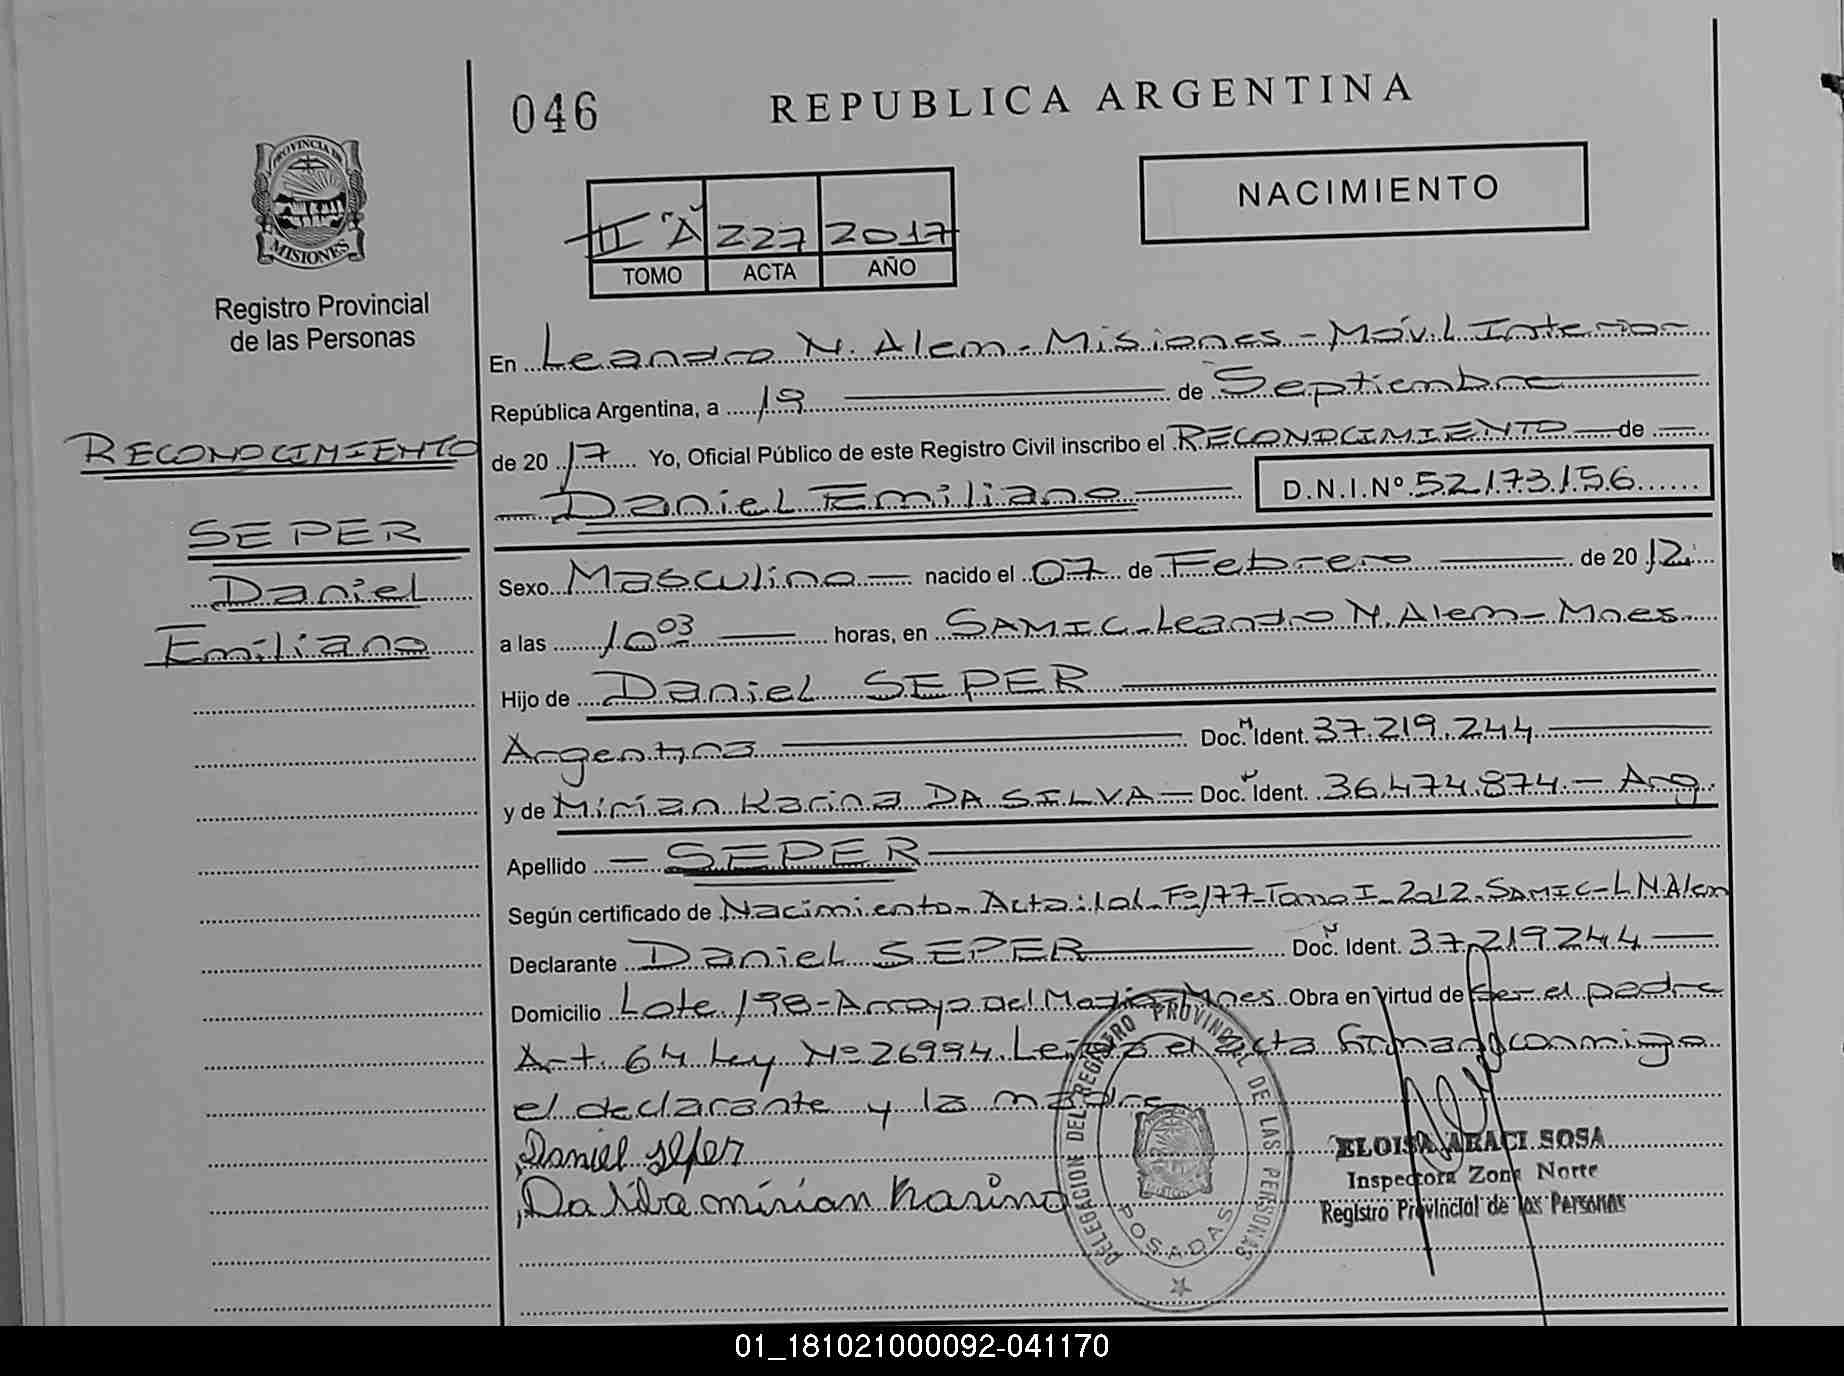 046
REPUBLICA ARGENTINA
PROVINCIA DE
MISIONES
Registro Provincial
de las Personas
NACIMIENTO
II "A" 227 2017
TOMO ACTA AÑO
En Leandro N. Alem - Misiones - Móvil Interior
República Argentina, a 19 de Septiembre
de 2017 Yo, Oficial Público de este Registro Civil inscribo el RECONOCIMIENTO de
Daniel Emiliano D.N.I.Nº 52.173.156
RECONOCIMIENTO
SEPER
Daniel
Emiliano
Sexo Masculino nacido el 07 de Febrero de 2012
a las 10 03 horas, en SAMIC - Leandro N. Alem - Mnes
Hijo de Daniel SEPER
Argentina Doc. Ident. 37.219.244
y de Mirian Karina DA SILVA - Doc. Ident. 36.474.874 - Arg
Apellido SEPER
Según certificado de Nacimiento - Acta: 101 - Fº/77 - Tomo I - 2012 - SAMIC - L.N.Alem
Declarante Daniel SEPER Doc. Ident. 37.219.244
Domicilio Lote 198 - Arroyo del Medio - Mnes Obra en virtud de Ser el padre
Art. 64 Ley Nº 26994. Leída el acta firman conmigo
el declarante y la madre
Daniel seper
Da silva mirian karina
DELEGACION DEL REGISTRO PROVINCIAL DE LAS PERSONAS
POSADAS
ELOISA ARACI SOSA
Inspectora Zona Norte
Registro Provincial de las Personas
01_181021000092-041170